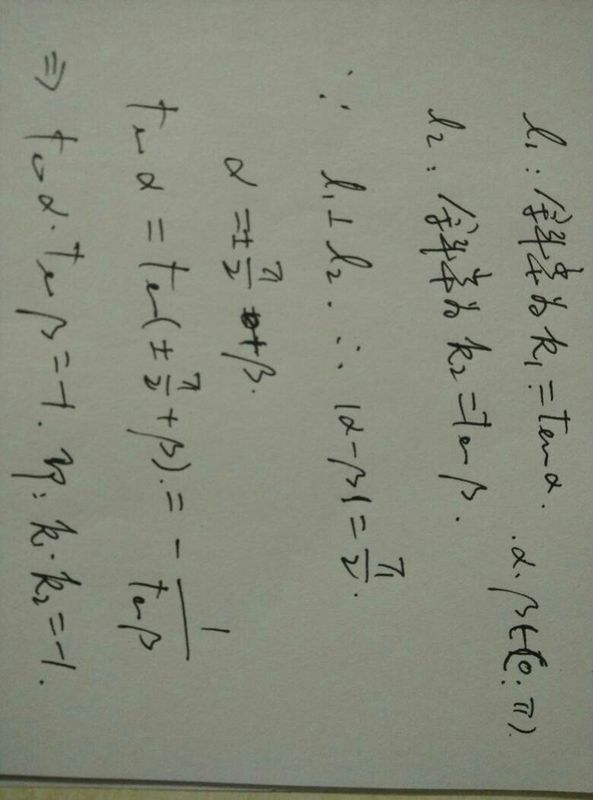 l₁: 斜率为 k₁ = tanα.
α. β ∈ [0. π).
l₂: 斜率为 k₂ = tanβ.
∵ l₁ ⊥ l₂. ∴ |α - β| = π/2.
α = ± π/2 + β.
tanα = tan(± π/2 + β). = - 1/tanβ
⇒ tanα · tanβ = -1. 即: k₁ · k₂ = -1.